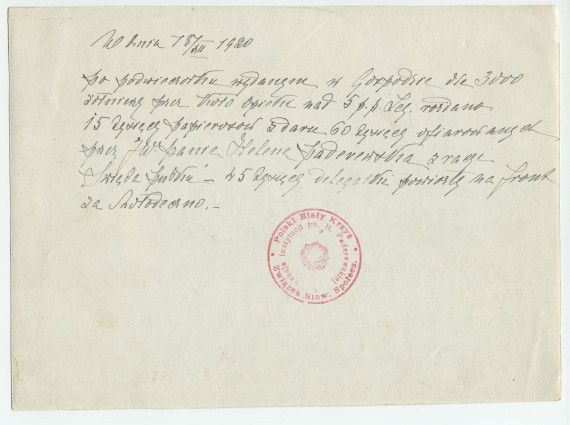 W dniu 18/VII 1920
po podwieczorku wydanym w Gospodzie dla 3000
żołnierzy przez Koło opieki nad 5 p.p. Leg. rozdano
15 tysięcy papierosów z daru 60 tysięcy ofiarowanych
przez JW Panią Helenę Paderewską z racji
Święta pułku – 45 tysięcy delegatki powiozły na front
za Mołodeczno. –
Polski Biały Krzyż
Instytucji im. H. Paderewskiej
Związek Stow. Społecz.